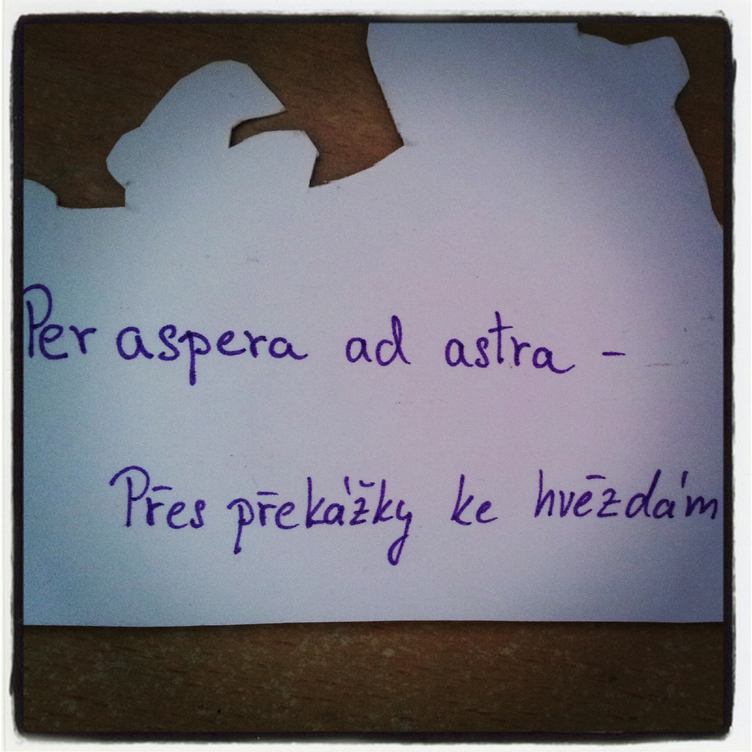 Per aspera ad astra -
Přes překážky ke hvězdám